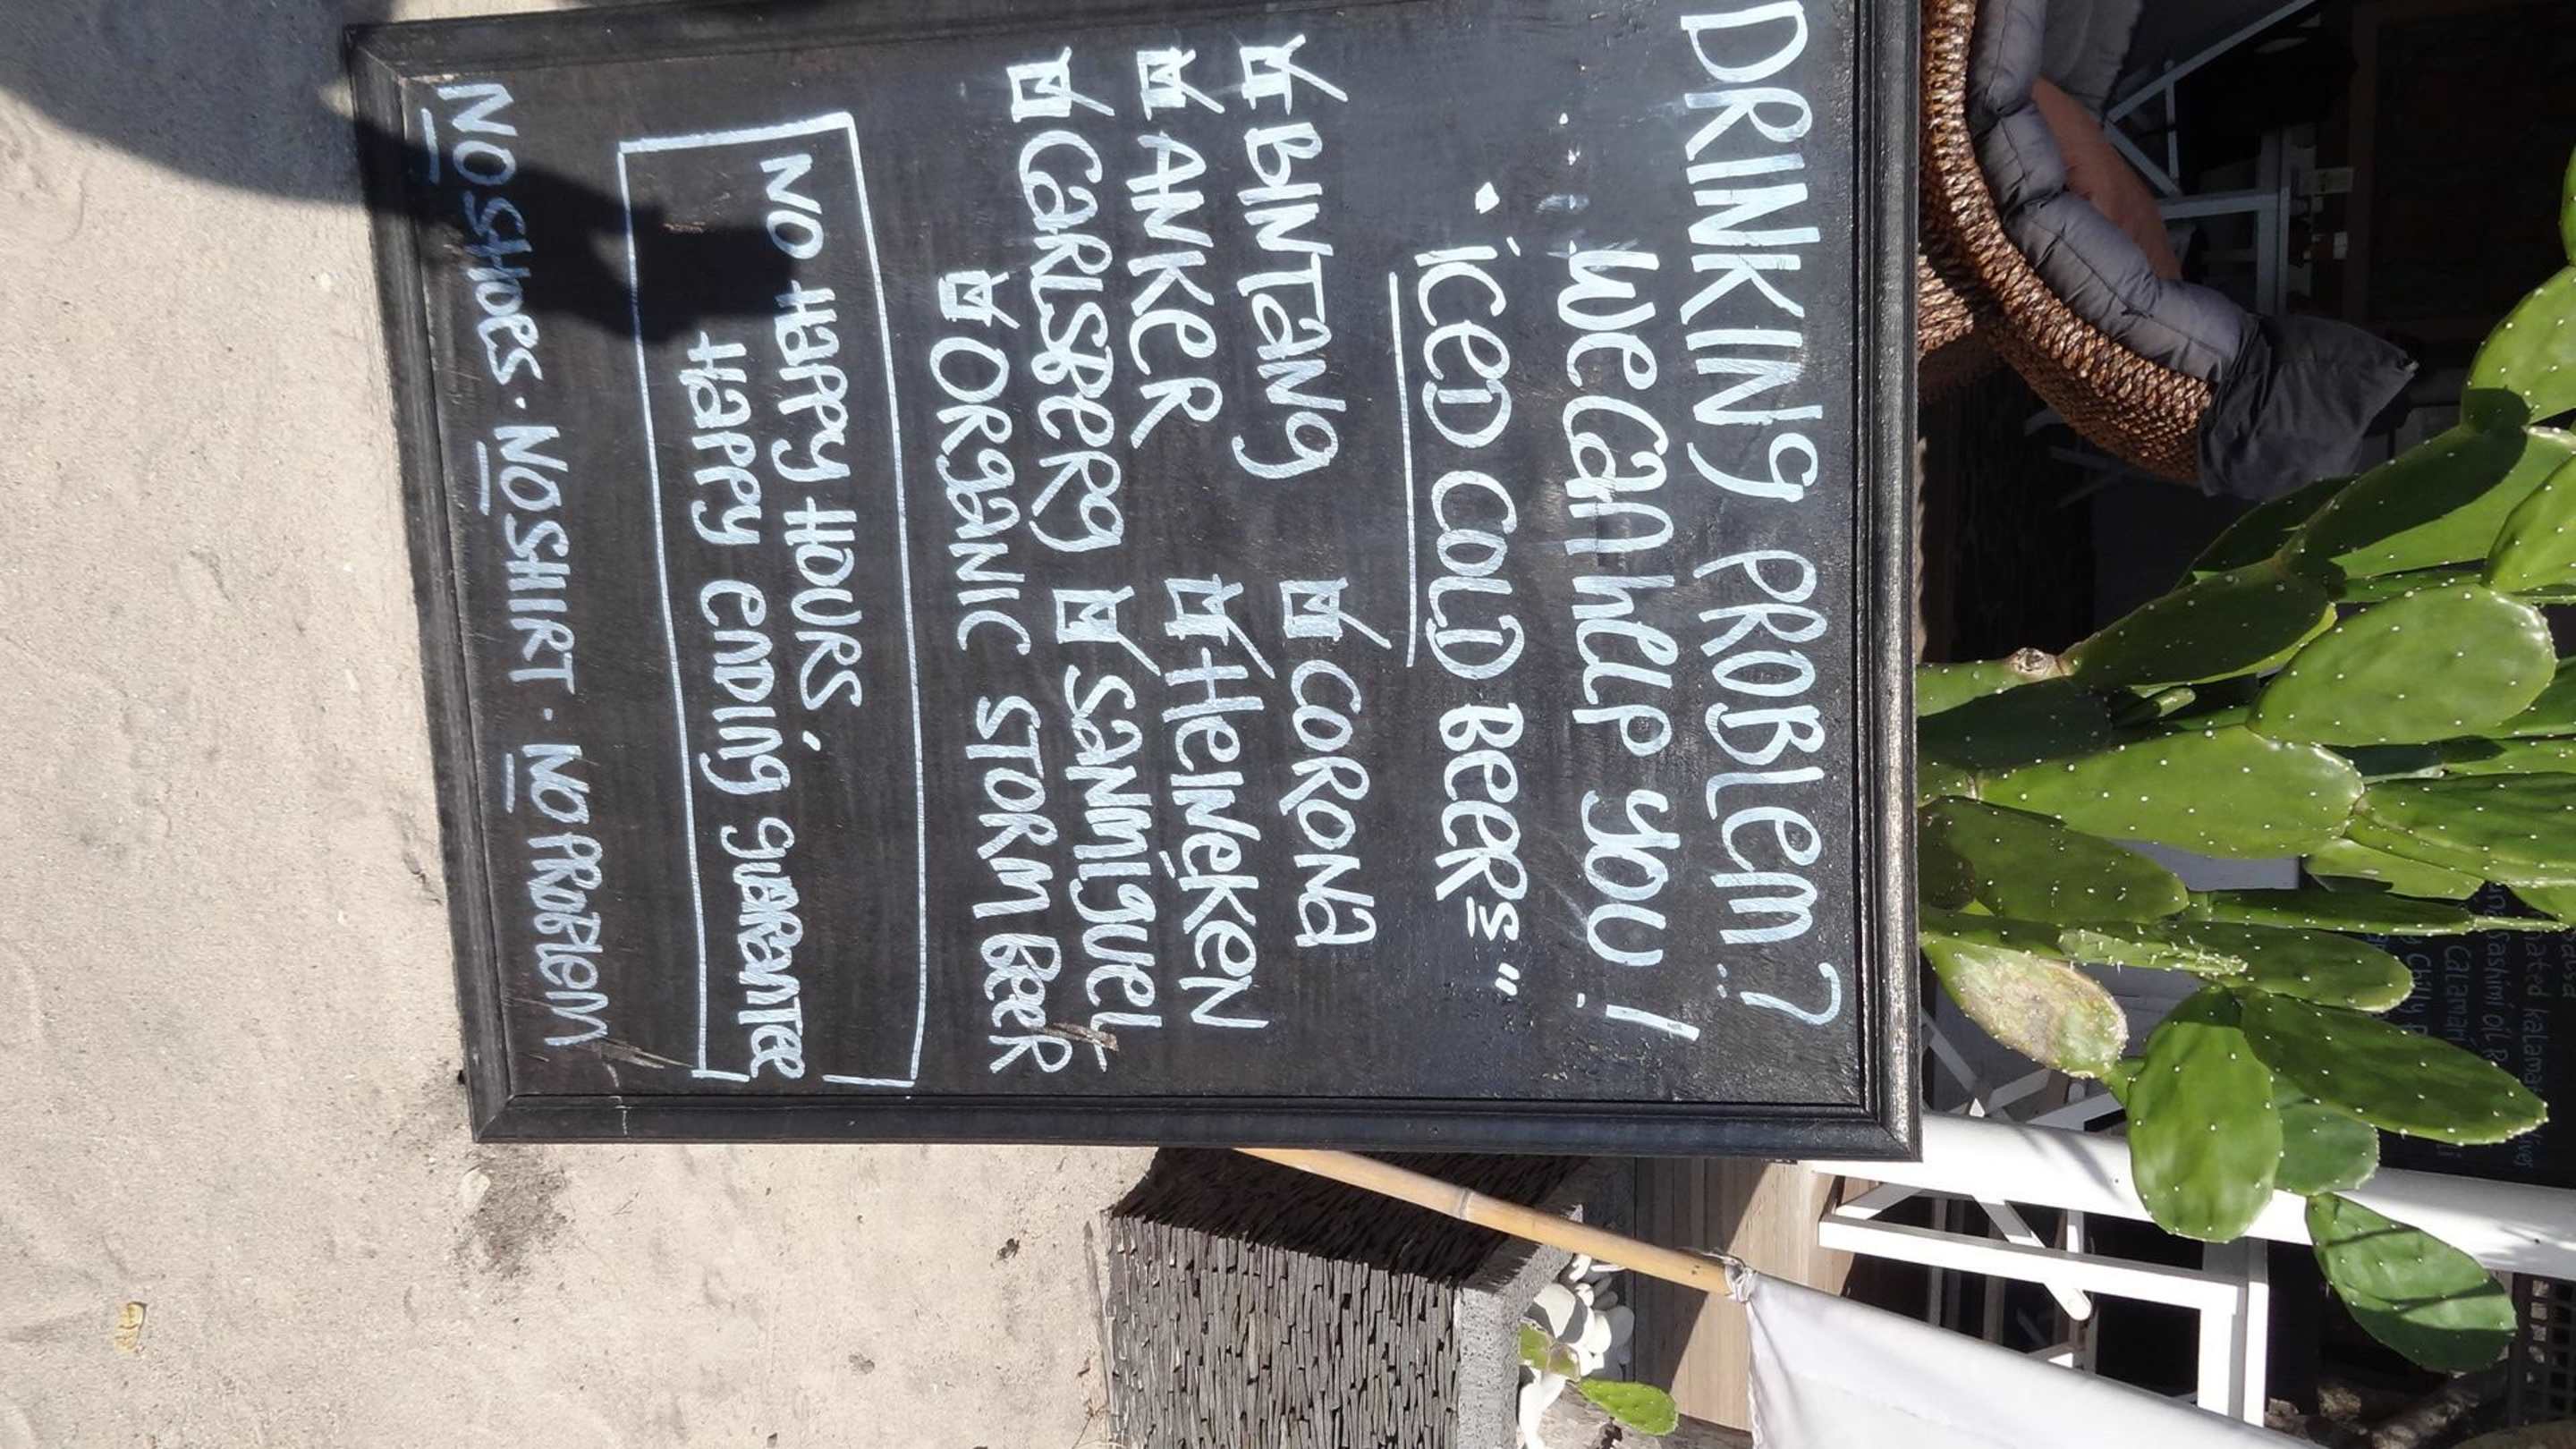 DRINKING PROBLEM?
... we can help you!
"iCED COLD BEERS"
BINTANG CORONA
ANKER HEINEKEN
CARLSBERG SANMIGUEL
ORGANIC STORM BEER
NO HAPPY HOURS.
HAPPY ENDING GUARANTEE
NO SHOES. NO SHIRT. NO PROBLEM
Sashimi
Calamari
Chilly